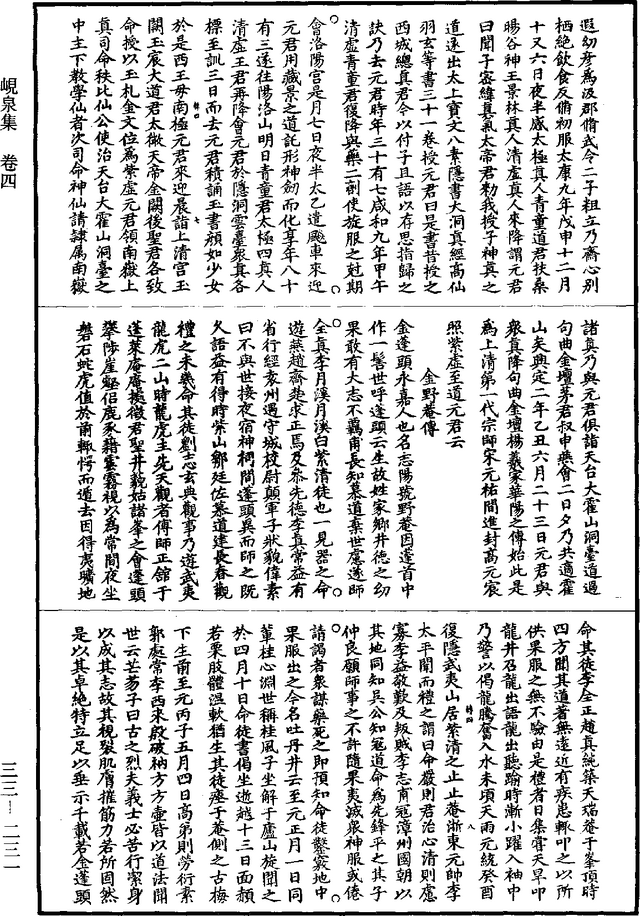 峴泉集　卷四
三三—二三一
遐幼彥爲汲郡脩武令二子粗立乃齋心別
栖絶飲食反脩初服太康九年戊申十二月
十又六日夜半感太極真人青童道君扶桑
暘谷神王景林真人清虛真人來降謂元君
曰聞子密緯真氣太帝君勑我授子神真之
道遂出太上寶文八素隱書大洞真經高仙
羽玄等書三十一卷授元君曰是書昔授之
西城總真君令以付子且語以存思指歸之
訣乃去元君時年三十有七咸和九年甲午
清虛青童君復降與藥二劑使旋服之尅期
會洛陽宮是月七日夜半太乙遣飈車來迎
元君用藏景之道託形神劒而化享年八十
有三遂往陽洛山明日青童君太極四真人
清虛王君再降會元君於隱洞雲臺衆真各
標至訓三日而去元君積誦玉書顔如少女
於是西王母南極元君來迎晨詣上清宫玉
闕玉宸大道君太微天帝金闕後聖君各致
命授以玉札金文位爲紫虛元君領南嶽上
真司命秩比仙公使治天台大霍山洞臺之
中主下教學仙者次司命神仙請隷属南嶽
諸真乃與元君俱詣天台大霍山洞臺道過
句曲金壇茅君叔申燕會二日夕乃共適霍
山矣興定二年乙丑六月二十三日元君與
衆真降句曲金壇楊羲家華陽之傳始此是
爲上清第一代宗師宋元祐間進封高元宸
照紫虛至道元君云
金野菴傳
金蓬頭永嘉人也名志陽號野菴因蓬首中
作一髻世呼蓬頭云生故姓家鄉井徳之幼
果敢有大志不羈甫長知慕道棄世慮遂師
全真李月溪月溪白紫清徒也一見器之命
遊燕趙齊楚求正馬及恭先徳李真常益有
省行經袁州遇守城校尉顛軍子狀貌偉素
曰不與世接夜宿神祠間蓬頭異而師之既
久語益有得時柴山鄒廷佐慕道建長春觀
禮之未幾命其徒劉志玄典觀事乃遊武夷
龍虎二山時龍虎主先天觀者傅師正舘于
蓬萊庵庵據徵君聖井藐姑諸峯之會蓬頭
攀陟崖壑侶鹿豕藉雲霧視以爲常間夜坐
磐石蛇虎值於前輙愕而遁去因得夷曠地
命其徒李全正趙真純築天瑞菴于峯頂時
四方聞其道著無遠近有疾患輙叩之以所
供果服之無不驗由是禮者日集嘗天旱叩
龍井召龍出語龍出聽踰時漸小躍入袖中
乃警以偈龍騰奮入水未頃天雨元統癸酉
復隱武夷山居紫清之止止菴浙東元帥李
太平聞而禮之謂曰命嚴則君治心清則慮
寡李益敬歎及叛賊李志甫寇漳州國朝以
其地同知吳公知寇道命爲先鋒平之其子
仲良願師事之不許隨果夷滅衆神服或倦
請謁者衆謀藥死之即預知命徒鑿窾地中
果服出之今名吐丹井云至元正月一日同
葷桂心淵世稱桂風子坐解于廬山旋聞之
於四月十日命徒書偈坐逝越十三日面顔
若栗肢體溫軟猶生其徒瘞于菴側之古梅
下生前至元丙子五月四日高弟則勞衍素
郭處常李西來殷破衲方方壷皆以道法聞
世云芒芴子曰古之烈夫義士必苦行潔身
以成其志故其稅裂肌膚摧筋力若所固然
是以其卓絶特立足以垂示千載若金蓬頭